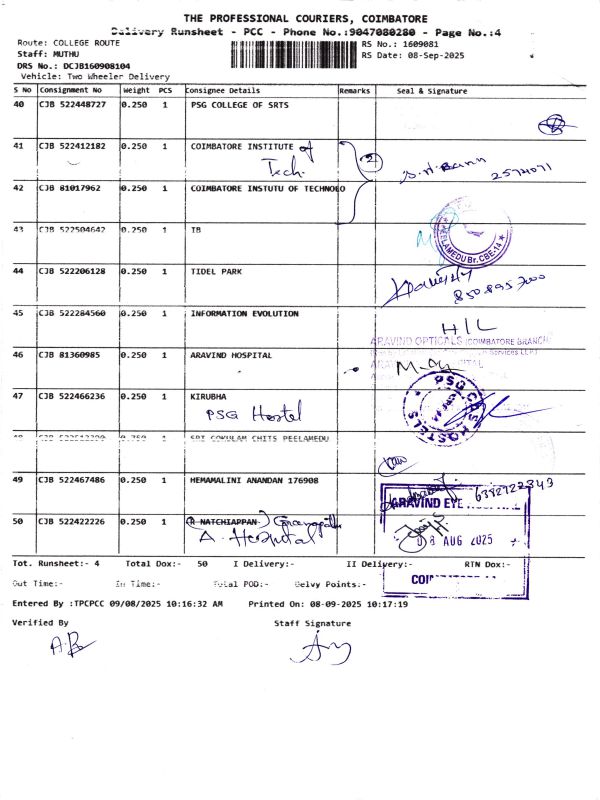 THE PROFESSIONAL COURIERS, COIMBATORE
Delivery Runsheet - PCC - Phone No.:9047080280 - Page No.:4
Route: COLLEGE ROUTE
RS No.: 1609081
Staff: MUTHU
RS Date: 08-Sep-2025
DRS No.: DCJB160908104
Vehicle: Two Wheeler Delivery
S No Consignment No Weight PCS Consignee Details Remarks Seal & Signature
40 CJB 522448727 0.250 1 PSG COLLEGE OF SRTS
41 CJB 522412182 0.250 1 COIMBATORE INSTITUTE of
Tech.
2
2574071
42 CJB 81017962 0.250 1 COIMBATORE INSTUTU OF TECHNOLO
43 CJB 522504642 0.250 1 IB
PEELAMEDU Br. CBE-14
44 CJB 522206128 0.250 1 TIDEL PARK
45 CJB 522284560 0.250 1 INFORMATION EVOLUTION
H/L
ARAVIND OPTICALS (COIMBATORE BRANCH)
46 CJB 81360985 0.250 1 ARAVIND HOSPITAL
47 CJB 522466236 0.250 1 KIRUBHA
PSG Hostel
PSG CAS HOSTELS
48 0.250 1 SRI GOKULAM CHITS PEELAMEDU
49 CJB 522467486 0.250 1 HEMAMALINI ANANDAN 176908
6382722849
ARAVIND EYE HOSPITAL
50 CJB 522422226 0.250 1 (R NATCHIAPPAN)
A. Hospital
08 AUG 2025
Tot. Runsheet:- 4 Total Dox:- 50 I Delivery:- II Delivery:- RTN Dox:-
Out Time:- In Time:- Total POD:- Delvy Points:-
Entered By :TPCPCC 09/08/2025 10:16:32 AM Printed On: 08-09-2025 10:17:19
Verified By Staff Signature